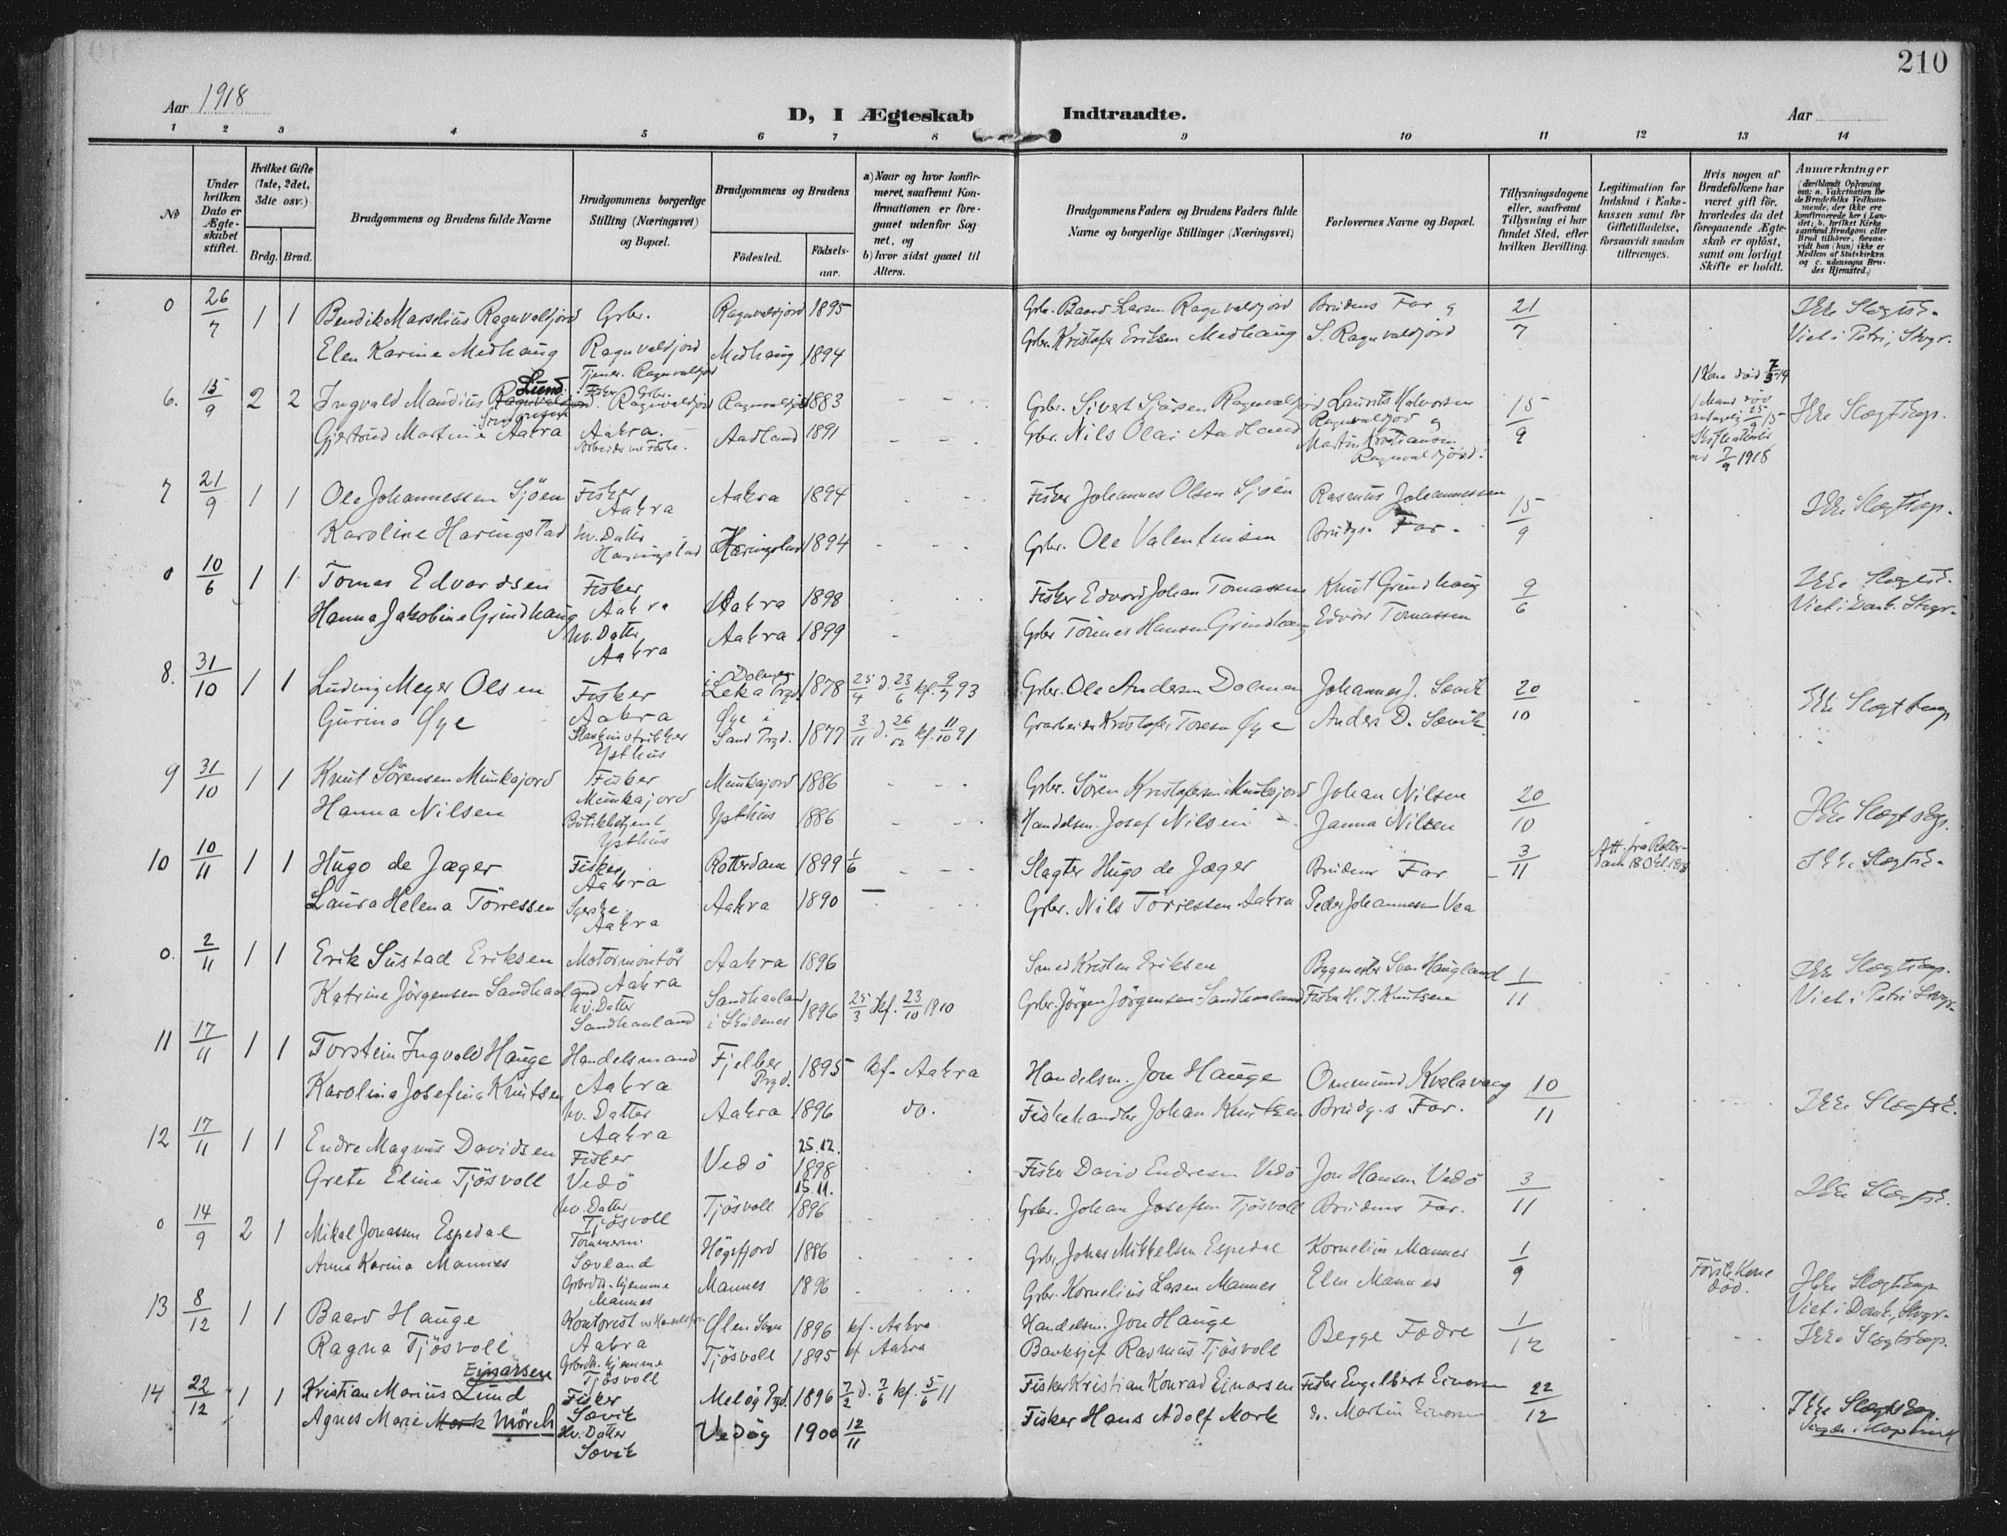 210
Aar 1918
D, I Ægteskab Indtraadte.
Aar
1 2 3 4 5 6 7 8 9 10 11 12 13 14
No
Under hvilken Dato er Ægteskabet stiftet.
Hvilket Gifte (1ste, 2det, 3die osv.)
Brdg. Brud.
Brudgommens og Brudens fulde Navne
Brudgommens borgerlige Stilling (Næringsvei) og Bopæl.
Brudgommens og Brudens
Födested. Födsels-aar.
a) Naar og hvor konfirmeret, saafremt Konfirmationen er foregaaet udenfor Sognet, og
b) hvor sidst gaaet til Alters.
Brudgommens Faders og Brudens Faders fulde Navne og borgerlige Stillinger (Næringsvei)
Forlovernes Navne og Bopæl.
Tillysningsdagene eller, saafremt Tillysning ei har fundet Sted, efter hvilken Bevilling.
Legitimation for Indskud i Enkekassen samt for Giftetilladelse, forsaavidt saadan tiltrænges.
Hvis nogen af Brudefolkene har været gift för, hvorledes da det foregaaende Ægteskab er oplöst, samt om lovligt Skifte er holdt.
Anmærkninger
0 26/7 1 1 Bendik Marselius Ragnvaldsjord Grbr. Ragnvaldsjord 1895 Grbr. Baard Larsen Ragnvaldsjord Brudens Far og 21/7 Ikke Slægtsk.
Elen Karine Medhaug Ragnvaldsjord Medhaug 1894 Grbr. Kristofer Eriksen Medhaug S. Ragnvaldsjord Viet i Petri, Stvgr.
Tjener. Ragnvaldsjord
6. 15/9 2 2 Ingvald Mandius Lund Fisker Grbr. Ragnvaldsjord Ragnvaldsjord 1883 Grbr. Sivert Sjursen Ragnvaldsjord Laurits Halvorsen Ragnvaldsjord og 15/9 1 Kone död 7/3 14 Ikke Slægtskap.
Gjertrud Martine Aakra Aakra. Aadland 1891 Grbr. Nils Olai Aadland Martin Kristiansen Ragnvaldsjord. 7/9 1918
7 21/9 1 1 Ole Johannessen Sjöen Fisker Aakra Aakra 1894 Fisker Johannes Olsen Sjöen Rasmus Johannessen 15/9 Ikke Slægtskap.
Karoline Haringstad hv. Datter Haringstad Hæringstad 1894 Grbr. Ole Valentinsen Brudgs. Far.
0 10/6 1 1 Tomas Edvardsen Fisker Aakra Aakra 1898 Fisker Edvard Johan Tomassen Knut Grindhaug 9/6 Ikke Slægtsk.
Hanna Jakobine Grindhaug hv. Datter Aakra Aakra 1899 Grbr Tönnes Hansen Grindhaug Edvard Tomassen Viet i Dank. Stvgr.
8. 31/10 1 1 Ludvig Meyer Olsen Fisker Aakra i Dolmen Leka Prgd. 1878 25/4 d. 23/6 kf. 9/7 93 Grbr. Ole Andersen Dolmen Johannes J. Sævik 20/10 Ikke Slægtskap
Gurina Øye Maskinstrikker Ysthus Øye i Sand Prgd. 1877 3/11 d. 26/12 kf. 11/10 91 Grarbeider Kristofer Toresen Øye Anders D. Sævik
9 31/10 1 1 Knut Sörensen Munkajord Fisker Munkajord Munkajord 1886 Grbr. Sören Kristofersen Munkajord Johan Nilsen 20/10 Ikke Slægtskap.
Hanna Nilsen Butikbetjent Ysthus Ysthus 1886 Handelsm. Josef Nilsen Janna Nilsen
10 10/11 1 1 Hugo de Jæger Fisker Aakra Rotterdam 1899 1/6 Slagter Hugo de Jæger Brudens Far 3/11 Att. fra Rotterdam 18 Okt. 1918 Ikke Slægtsk.
Laura Helena Törressen Syerske Aakra Aakra 1890 Grbr. Nils Törressen Aakra Peder Johannesen Vea
0. 2/11 1 1 Erik Sustad Eriksen Motormontör Aakra Aakra 1896 Smed Kristen Eriksen Bygmester Sven Haugland 1/11 Ikke Slægtskap.
Katrine Jörgensen Sandhaaland hv. Datter Sandhaaland Sandhaaland i Skudenes 1896 25/3 kf. 23/10 1910 Grbr. Jörgen Jörgensen Sandhaaland Fisker H. J. Knutsen Viet i Petri Stvgr.
11 17/11 1 1 Torstein Ingvald Hauge Handelsmand Aakra Fjelber Prgd. 1895 kf. Aakra Handelsm. Jon Hauge Ommund Kvalavaag 10/11 Ikke Slægtsk.
Karolina Josefina Knutsen hv. Datter Aakra Aakra 1896 do. Fiskehandler Johan Knutsen Brudg.s Far.
12 17/11 1 1 Endre Magnus Davidsen Fisker Vedö Vedö 25.12. 1898 Fisker David Endresen Vedö Jon Hansen Vedö 3/11 Ikke Slægtsk.
Grete Eline Tjösvoll hv. Datter Tjösvoll Tjösvoll 15.11. 1896 Grbr. Johan Josefsen Tjösvoll Brudens Far.
0 14/9 2 1 Mikal Jonassen Espedal Tömmerm. Sævland Högsfjord 1886 Grbr. Johas Mikkelsen Espedal Kornelius Mannes 1/9 Förste Kone död. Ikke Slægtskap
Anna Karina Mannes Grbrdtr. hjemme Mannes Mannes 1896 Grbr. Kornelius Larsen Mannes Elen Mannes Viet i Dank. Stvgr.
13 8/12 1 1 Baard Hauge Kontorist Aakra Ølen Sogn 1896 kf. Aakra Handelsm. Jon Hauge Begge Fædre 1/12 Ikke Slægtskap.
Ragna Tjösvoll Grbrdtr. hjemme Tjösvoll Tjösvoll 1895 kf Aakra Banksjef Rasmus Tjösvoll
14 22/12 1 1 Kristian Marius Lund Einarsen Fisker Sævik Melöy Prgd. 1896 7/2 d. 7/6 kf. 5/6 11 Fisker Kristian Konrad Einarsen Fisker Engelbert Einarsen 22/12 Ikke Slægtskap.
Agnes Marie Mork Mörch Hv. Datter Sævik Vedöy 1900 12/11 Fisker Hans Adolf Mork do. Martin Einarsen